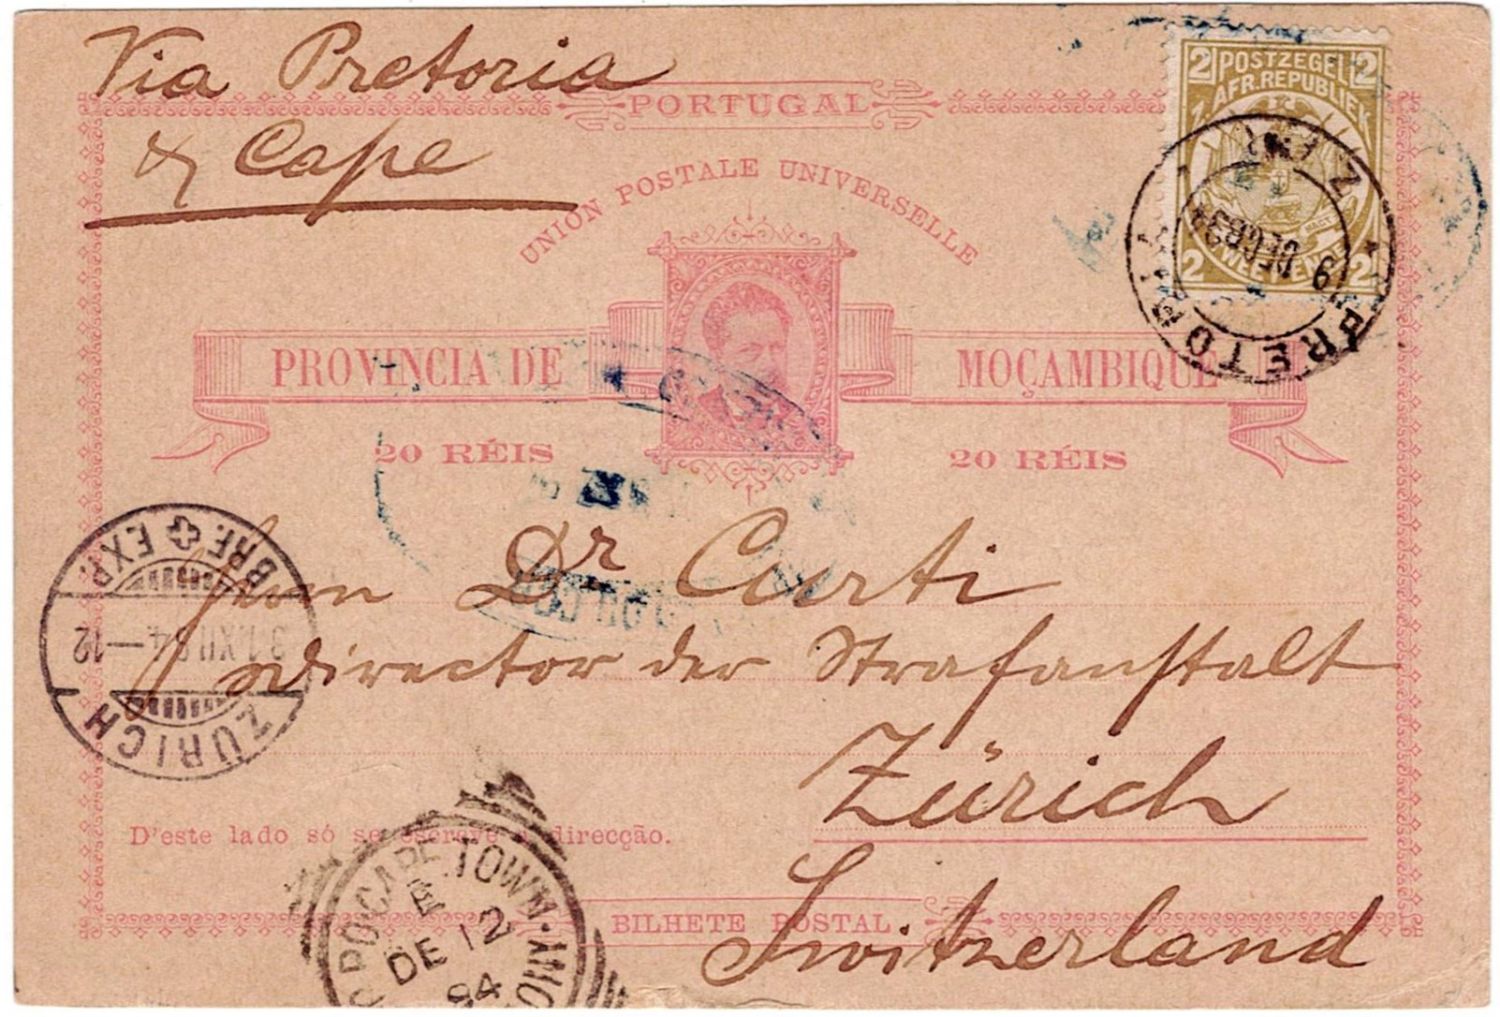 Via Pretoria
& Cape
PORTUGAL
UNION POSTALE UNIVERSELLE
2 POSTZEGEL 2
Z. AFR. REPUBLIEK
2 TWEE PENCE 2
PRETORIA
Z.A.R.
9 DECR 94
PROVINCIA DE MOÇAMBIQUE
20 RÉIS 20 RÉIS
BRF. EXP.
31. XII. 94. —12
ZÜRICH
Herrn Dr Curti
Director der Strafanstalt
Zürich
Switzerland
D'este lado só se escreve a direcção.
BILHETE POSTAL
G.P.O. CAPE TOWN.
E
DE 12
94